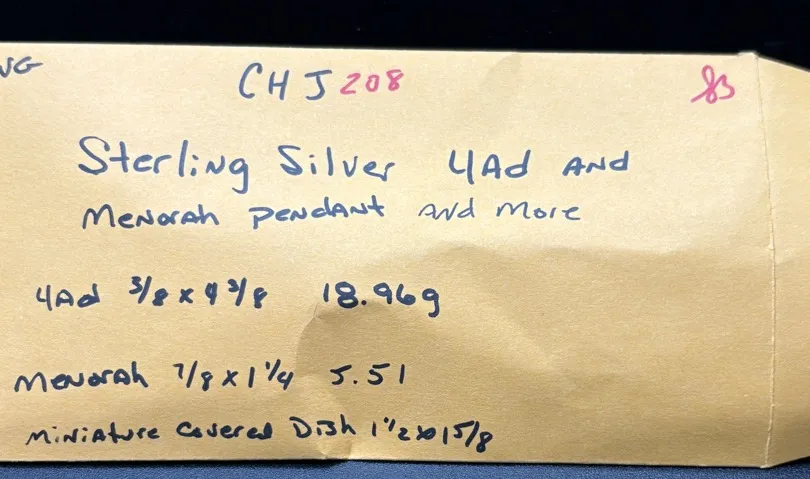 CHJ 208
Sterling Silver 4Ad and
Menorah pendant and More
4Ad 3/8 x 4 3/8 18.96g
Menorah 7/8 x 1 1/4 5.51
Miniature Covered Dish 1 1/2 x 1 5/8